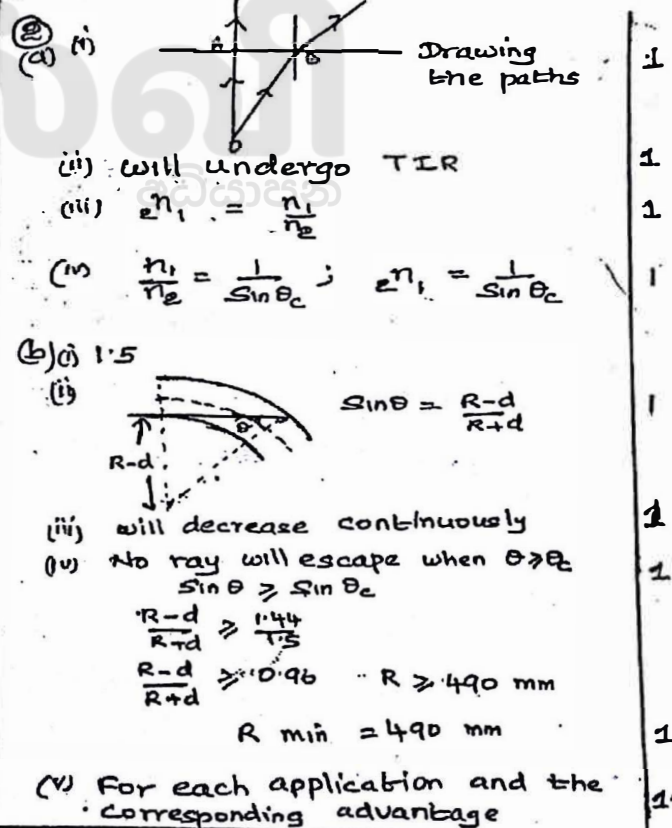 ②
(a) (i) A B Drawing the paths 1
O
(ii) will undergo TIR 1
(iii) ₂n₁ = n₁/n₂ 1
(iv) n₁/n₂ = 1/Sin θc ; ₂n₁ = 1/Sin θc 1
(b) (i) 1.5
(ii) θ R-d Sinθ = R-d/R+d 1
(iii) will decrease continuously 1
(iv) No ray will escape when θ ⩾ θc 1
Sin θ ⩾ Sin θc
R-d/R+d ⩾ 1.44/1.5
R-d/R+d ⩾ 0.96 R ⩾ 490 mm
R min = 490 mm 1
(v) For each application and the
corresponding advantage 1